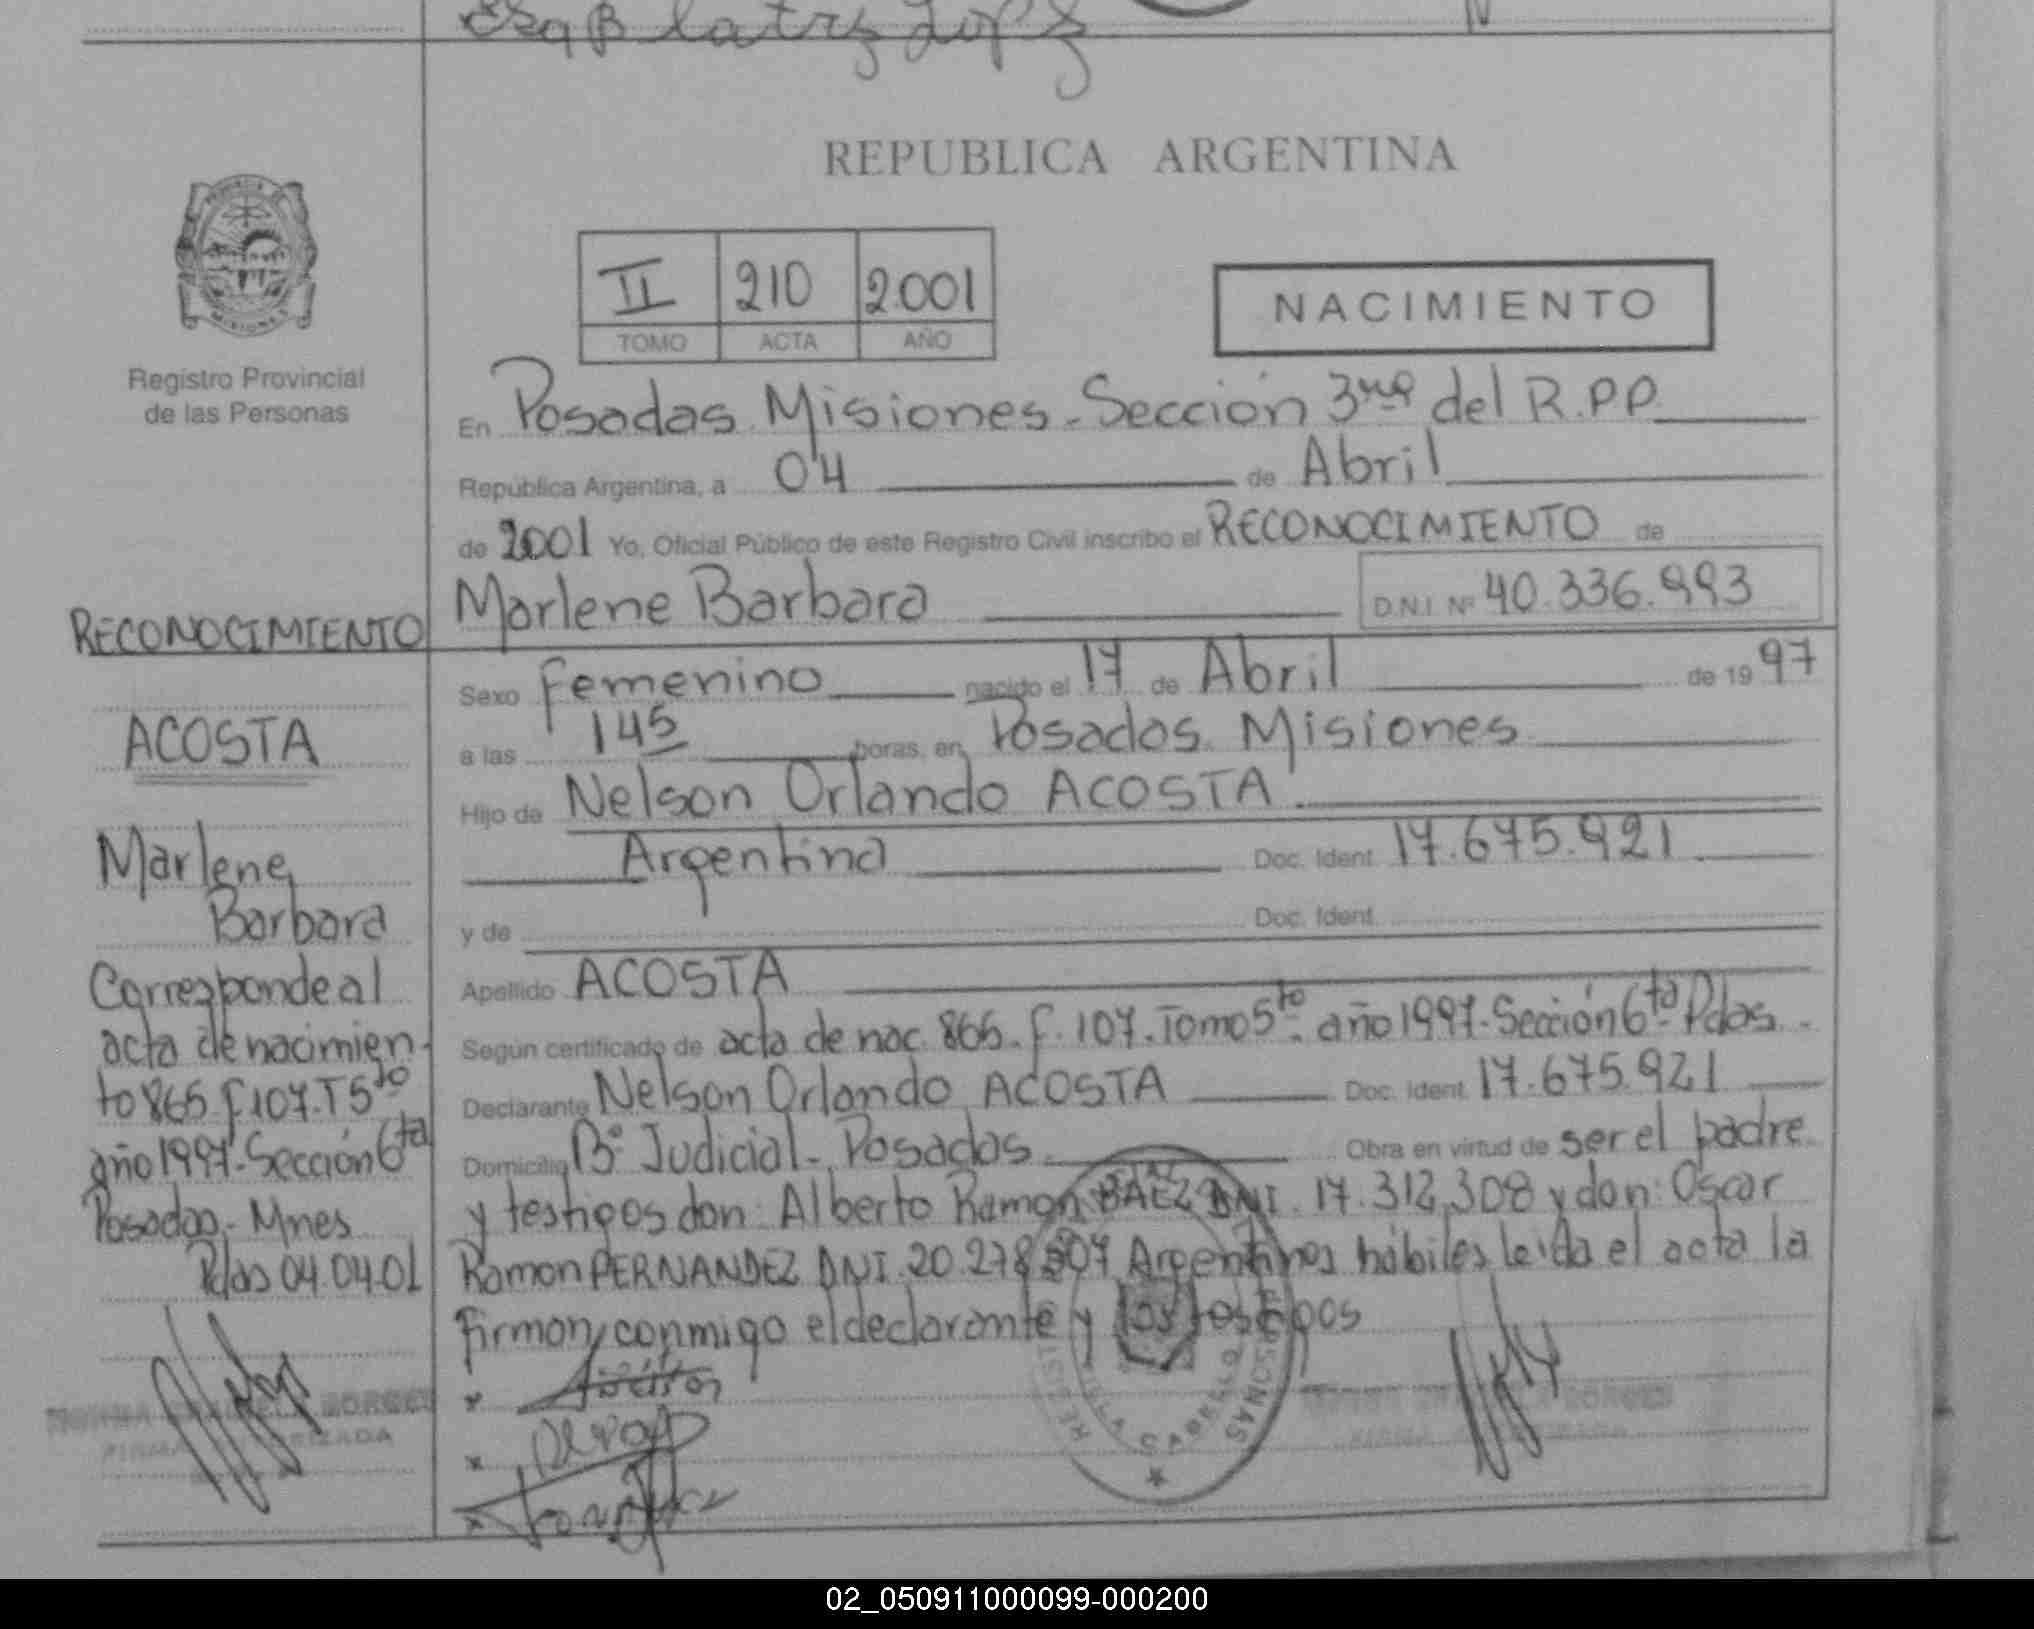 REPUBLICA ARGENTINA
PROVINCIA
MISIONES
Registro Provincial
de las Personas
II 210 2.001
TOMO ACTA AÑO
NACIMIENTO
En Posadas Misiones - Sección 3ra del R.P.P.
República Argentina, a 04 de Abril
de 2001 Yo, Oficial Público de este Registro Civil inscribo el RECONOCIMIENTO de
Marlene Barbara D.N.I. Nº 40.336.993
Sexo Femenino nacido el 17 de Abril de 19 97
a las 145 horas, en Posadas Misiones
Hijo de Nelson Orlando ACOSTA
Argentina Doc. Ident. 17.675.921
y de Doc. Ident.
Apellido ACOSTA
Según certificado de acta de nac. 865. f. 107. Tomo 5to año 1997. Sección 6ta Pdas.
Declarante Nelson Orlando ACOSTA Doc. Ident. 17.675.921
Domicilio Bº Judicial - Posadas Obra en virtud de ser el padre
y testigos don: Alberto Ramon BAEZ DNI. 17.312.308 y don: Oscar
Ramon FERNANDEZ DNI. 20.278 Argentinos hábiles leida el acta la
firman conmigo el declarante y los testigos
RECONOCIMIENTO
ACOSTA
Marlene
Barbara
Corresponde al
acta de nacimien-
to 865. f. 107. T 5to
año 1997. Sección 6ta
Posadas - Mnes
Pdas 04.04.01
NORMA BORGES
FIRMA AUTORIZADA
02_050911000099-000200